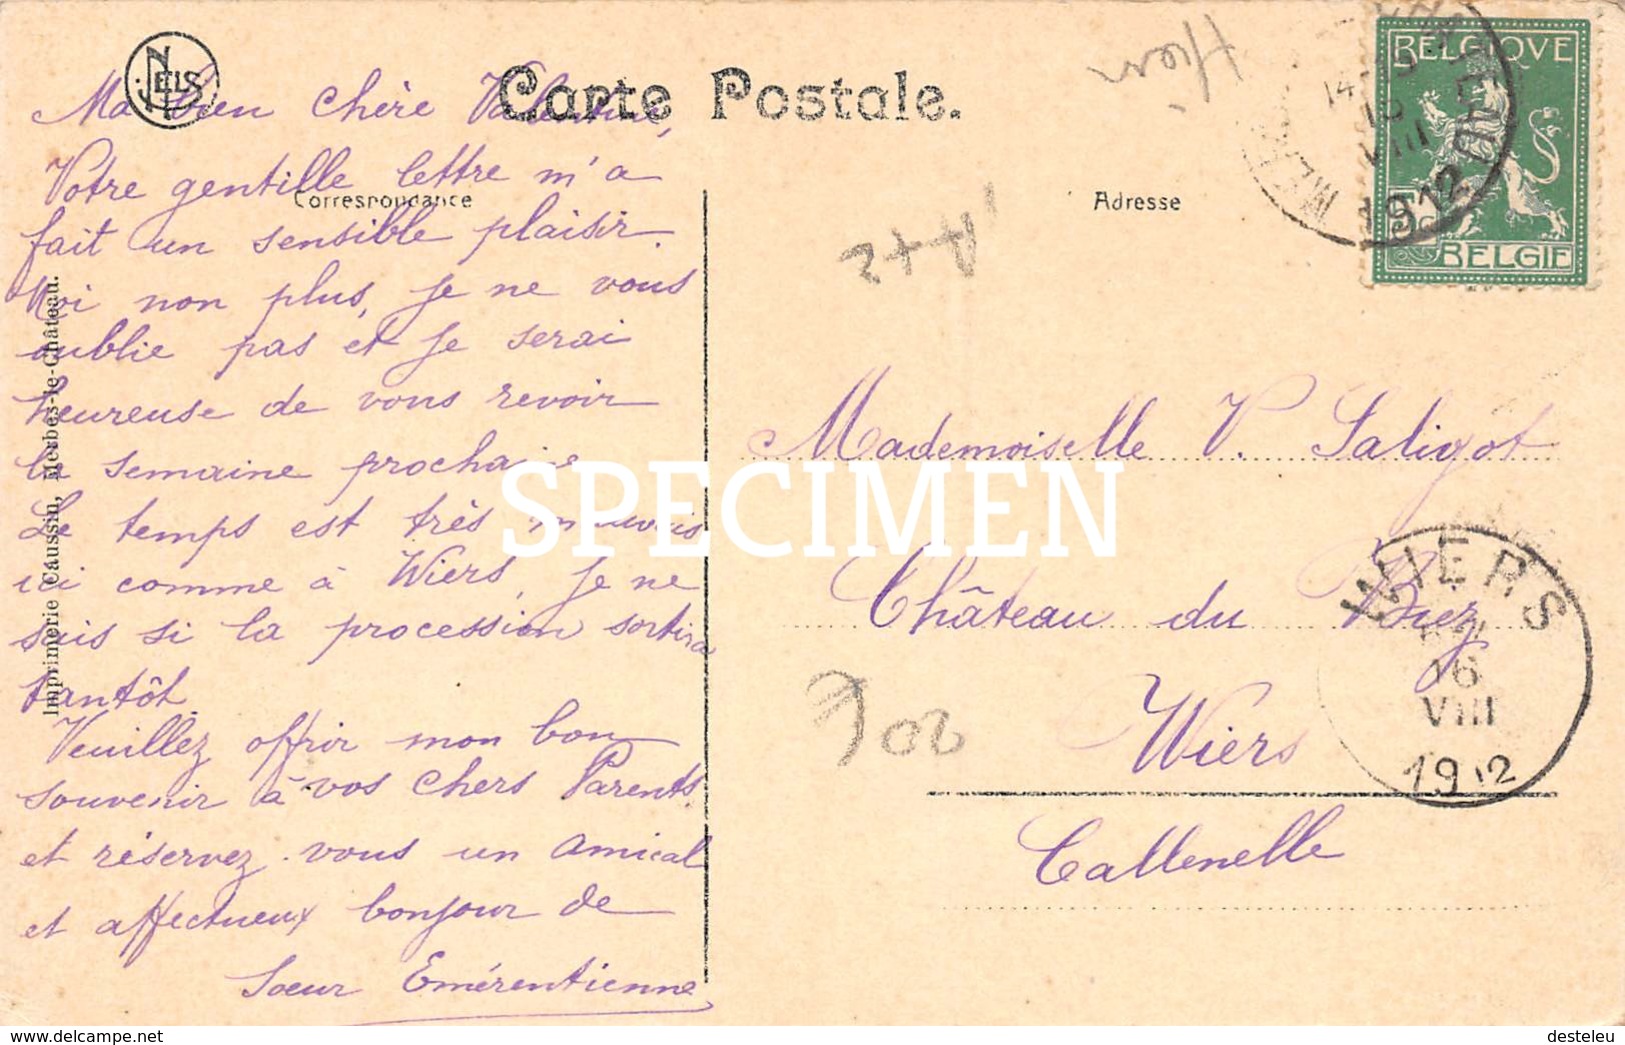 NELS
Carte Postale.
Correspondance
Adresse
BELGIQUE
BELGIE
14-15
1912
Ma bien chère Valentine,
Votre gentille lettre m'a
fait un sensible plaisir.
Moi non plus, je ne vous
oublie pas et je serai
heureuse de vous revoir
la semaine prochaine
Le temps est très mauvais
ici comme à Wiers, je ne
sais si la procession sortira
tantôt.
Veuillez offrir mon bon
souvenir à vos chers Parents
et réservez-vous un amical
et affectueux bonjour de
Soeur Emérentienne
Imprimerie Caussin, Merbes-le-Château.
SPECIMEN
Mademoiselle V. Saligot
Château du Biez
Wiers
Callenelle
WIERS
16
VIII
1912
delcampe.net
desteleu